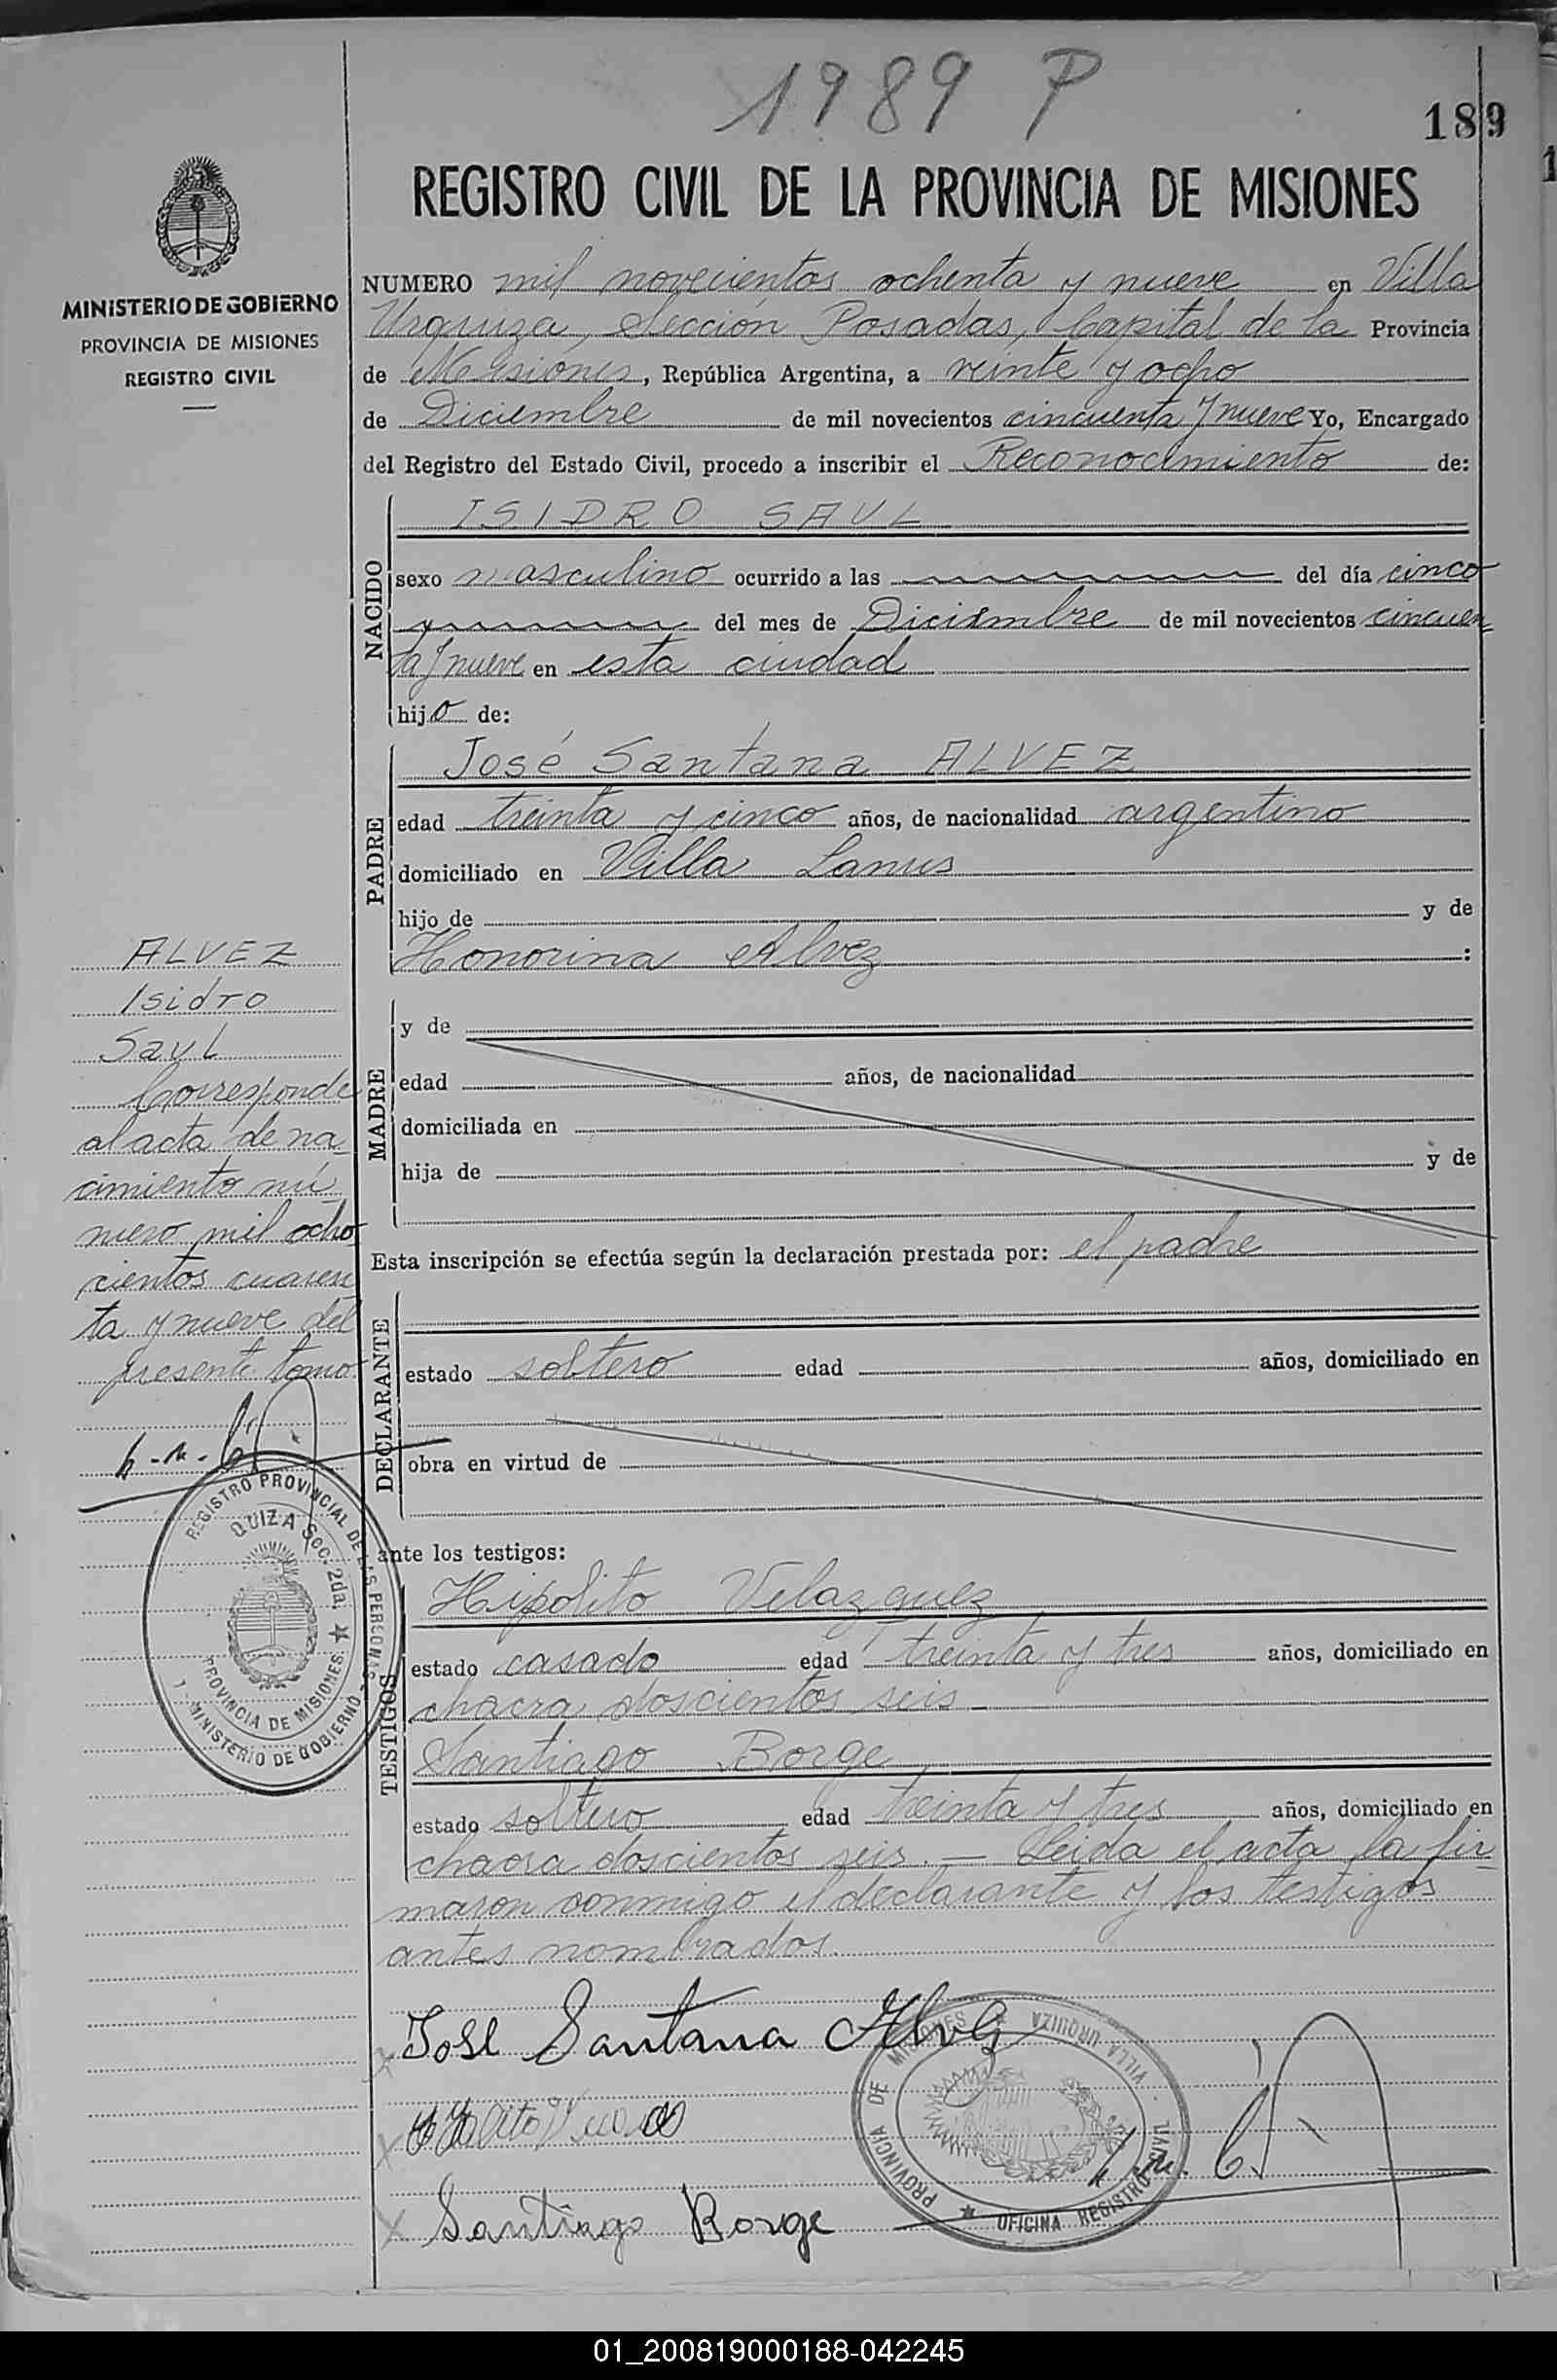 1989 P
189
REGISTRO CIVIL DE LA PROVINCIA DE MISIONES
MINISTERIO DE GOBIERNO
PROVINCIA DE MISIONES
REGISTRO CIVIL
NUMERO mil novecientos ochenta y nueve en Villa
Urquiza, Sección Posadas, Capital de la Provincia
de Misiones, República Argentina, a veinte y ocho
de Diciembre de mil novecientos cincuenta y nueve Yo, Encargado
del Registro del Estado Civil, procedo a inscribir el Reconocimiento de:
NACIDO
ISIDRO SAUL
sexo masculino ocurrido a las del día cinco
del mes de Diciembre de mil novecientos cincuen
ta y nueve en esta ciudad
hijo de:
PADRE
José Santana ALVEZ
edad treinta y cinco años, de nacionalidad argentino
domiciliado en Villa Lanus
hijo de y de
Honorina Alvez :
MADRE
y de
edad años, de nacionalidad
domiciliada en
hija de y de
Esta inscripción se efectúa según la declaración prestada por: el padre
DECLARANTE
estado soltero edad años, domiciliado en
obra en virtud de
ante los testigos:
TESTIGOS
Hipólito Velazquez
estado casado edad treinta y tres años, domiciliado en
chacra doscientos seis -
Santiago Borge
estado soltero edad treinta y tres años, domiciliado en
chacra doscientos seis. — Leida el acta la fir
maron conmigo el declarante y los testigos
antes nombrados.
ALVEZ
Isidro
Saul
Corresponde
al acta de na
cimiento nú
mero mil ocho
cientos cuaren
ta y nueve del
presente tomo
REGISTRO PROVINCIAL DE LAS PERSONAS
QUIZA Sec. 2da.
PROVINCIA DE MISIONES
MINISTERIO DE GOBIERNO
Jose Santana Alvez
Santiago Borge
PROVINCIA DE MISIONES
VILLA URQUIZA
OFICINA REGISTRO CIVIL
01_200819000188-042245